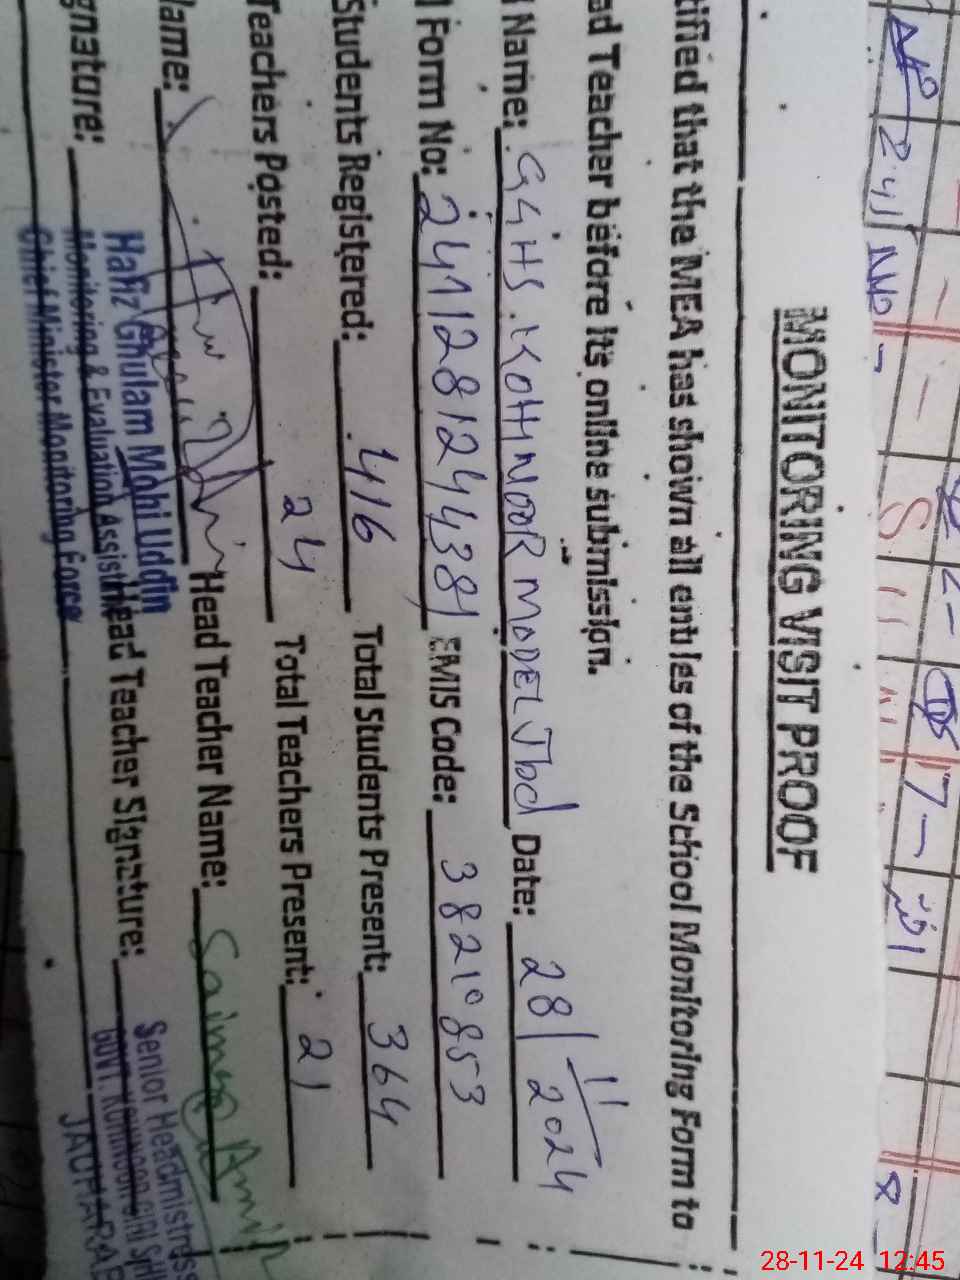 MONITORING VISIT PROOF
tified that the MEA has shown all entries of the School Monitoring Form to
ad Teacher before its online submission.
Name: GGHS. KOHINOOR MODEL Jbd Date: 28/11/2024
Form No: 241128124438 EMIS Code: 38210853
Students Registered: 416 Total Students Present: 364
Teachers Posted: 24 Total Teachers Present: 21
Name: Head Teacher Name: Saima Amin
gnature: Head Teacher Signature:
Hafiz Ghulam Mohi Uddin
Monitoring & Evaluation Assist
Chief Minister Monitoring Force
Senior Headmistress
GOVT. KOHINOOR GIRL
28-11-24 12:45